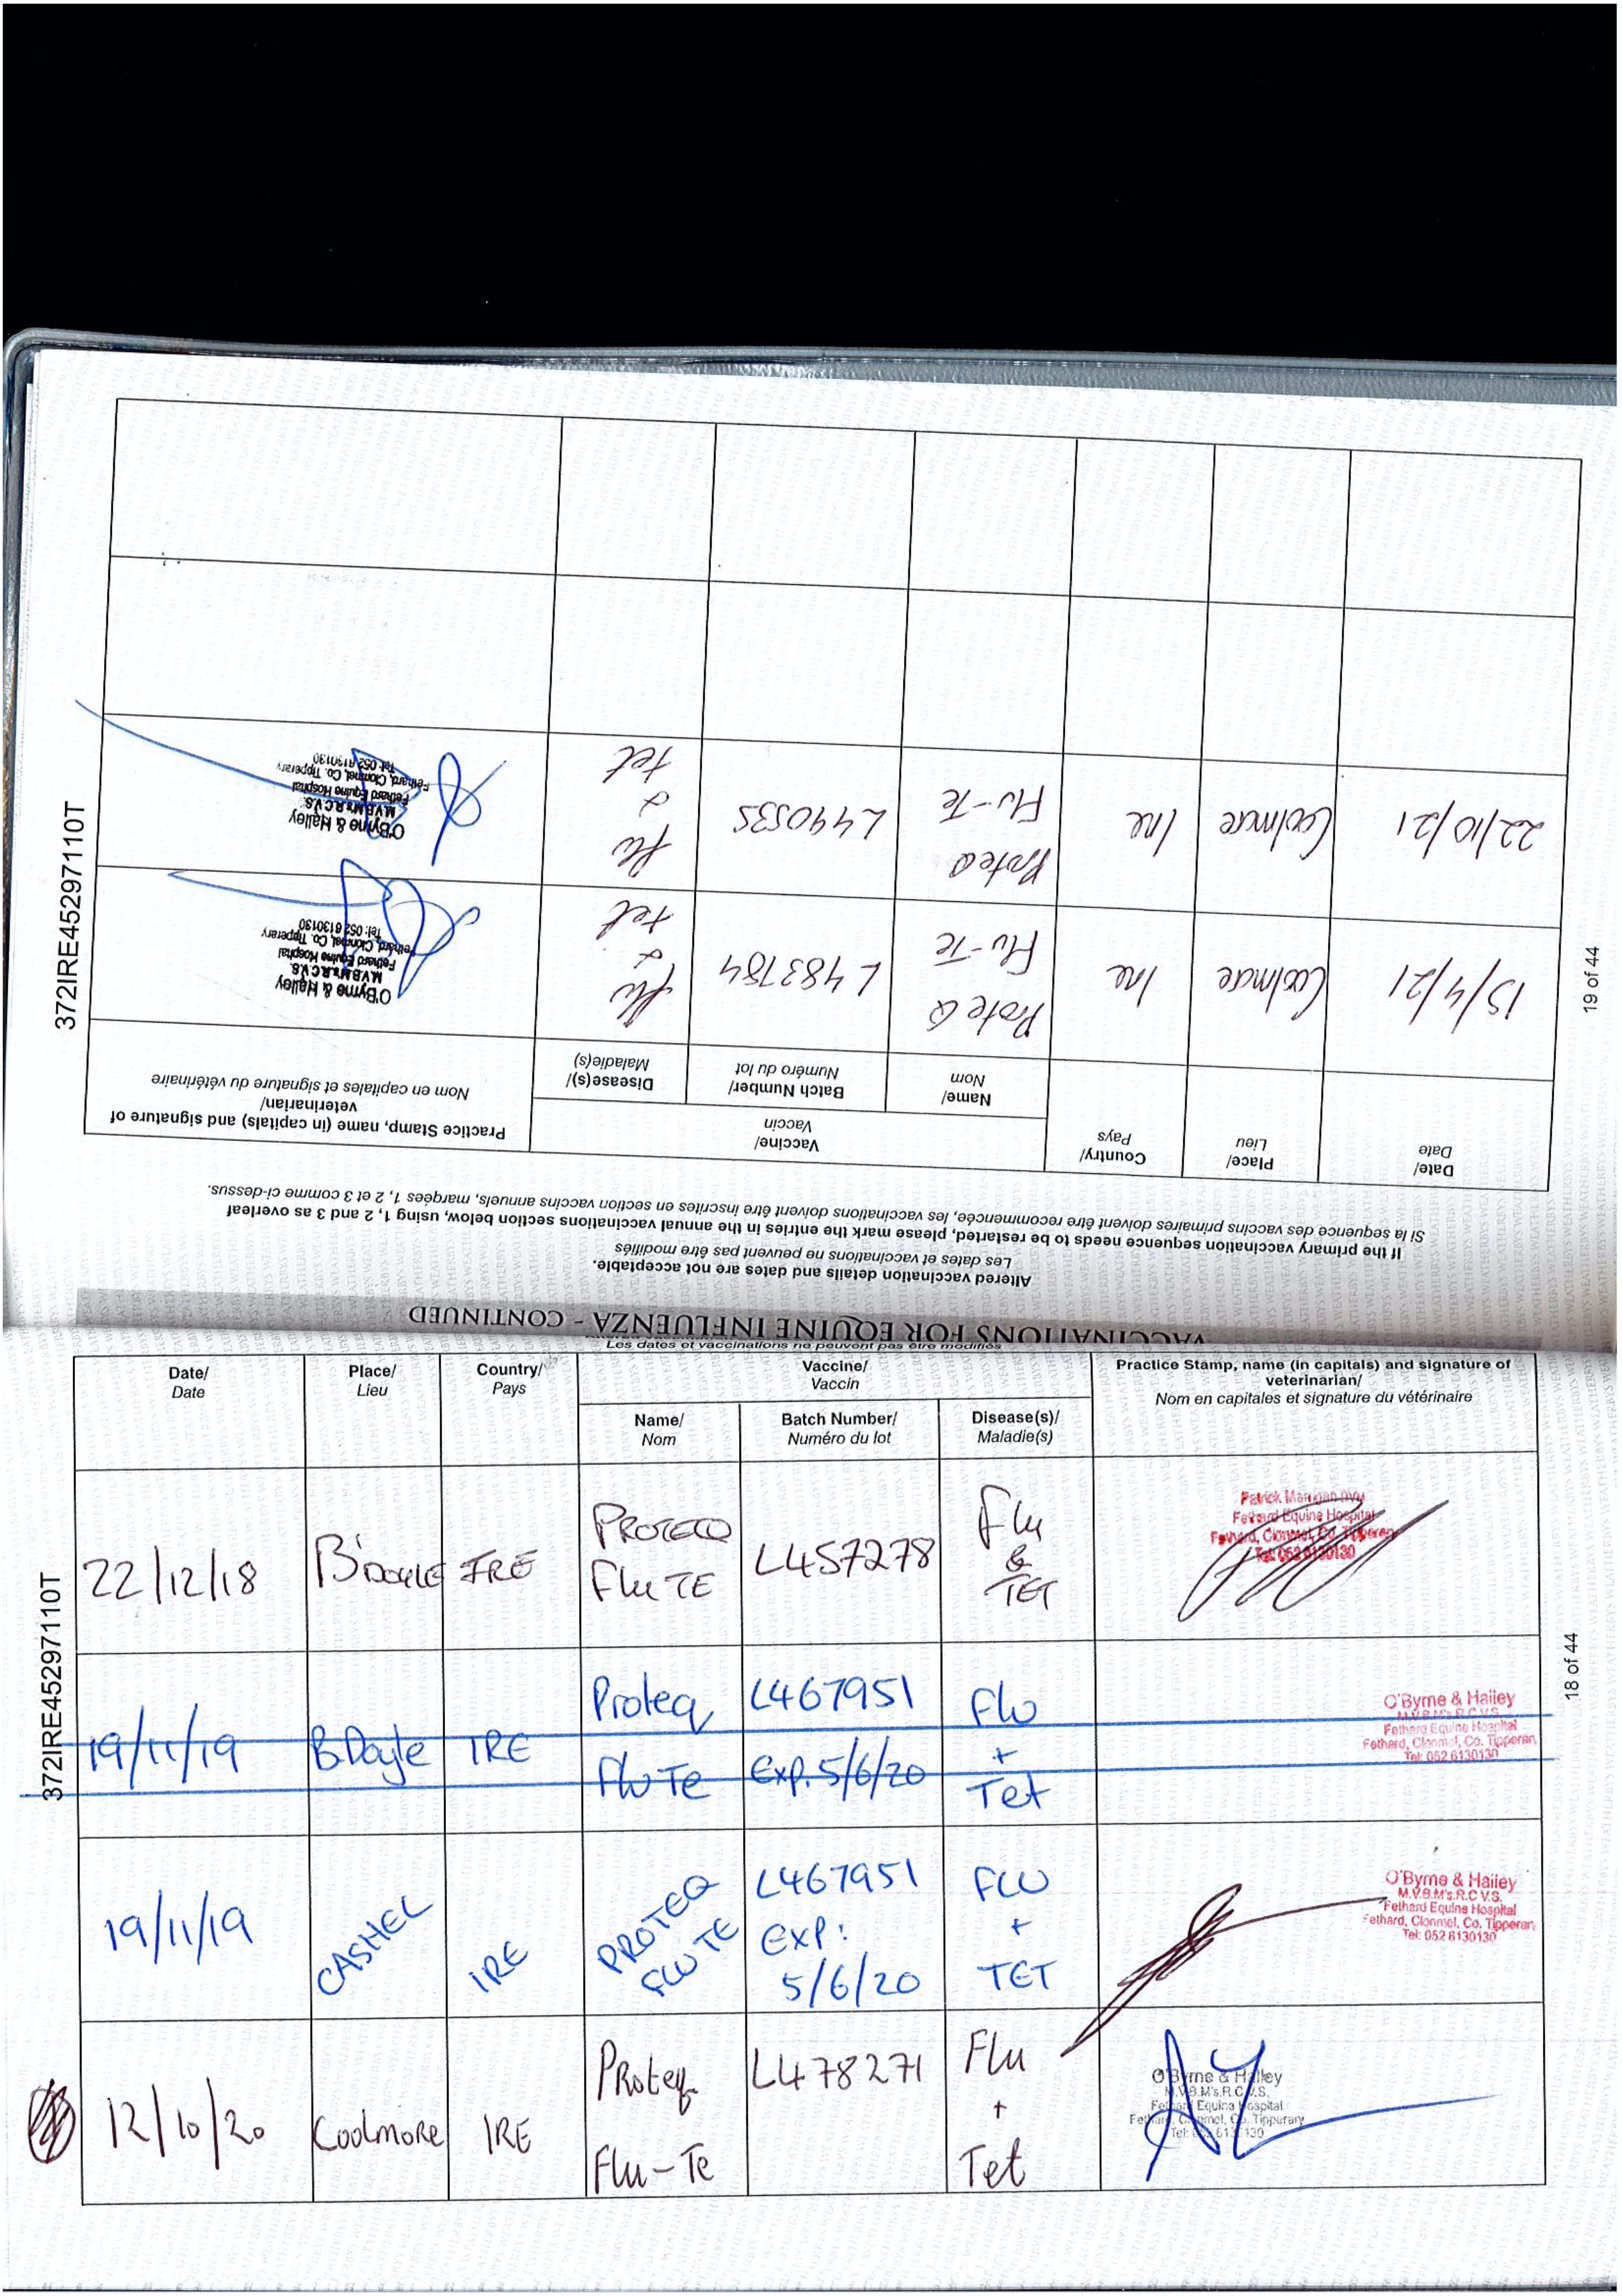 Les dates et vaccinations ne peuvent pas être modifiés
Date/
Date
Place/
Lieu
Country/
Pays
Vaccine/
Vaccin
Name/
Nom
Batch Number/
Numéro du lot
Disease(s)/
Maladie(s)
Practice Stamp, name (in capitals) and signature of
veterinarian/
Nom en capitales et signature du vétérinaire
22/12/18
B'Doyle
IRE
PROTEQ
Flu TE
L457278
Flu
&
TET
Patrick Mangan DVM
Fethard Equine Hospital
Fethard, Clonmel, Co. Tipperary
Tel: 052 6130130
19/11/19
B.Doyle
IRE
Proteq
Flu Te
L467951
Exp. 5/6/20
Flu
+
Tet
O'Byrne & Halley
M.V.B.M's.R.C.V.S.
Fethard Equine Hospital
Fethard, Clonmel, Co. Tipperary
Tel: 052 6130130
19/11/19
CASHEL
IRE
PROTEQ
FLU TE
L467951
EXP:
5/6/20
FLU
+
TET
O'Byrne & Halley
M.V.B.M's.R.C.V.S.
Fethard Equine Hospital
Fethard, Clonmel, Co. Tipperary
Tel: 052 6130130
12/10/20
Coolmore
IRE
Proteq
Flu-Te
L478271
Flu
+
Tet
O'Byrne & Halley
M.V.B.M's.R.C.V.S.
Fethard Equine Hospital
Fethard, Clonmel, Co. Tipperary
Tel: 052 6130130
372IRE45297110T
18 of 44
VACCINATIONS FOR EQUINE INFLUENZA - CONTINUED
Altered vaccination details and dates are not acceptable.
Les dates et vaccinations ne peuvent pas être modifiés
If the primary vaccination sequence needs to be restarted, please mark the entries in the annual vaccinations section below, using 1, 2 and 3 as overleaf
Si la sequence des vaccins primaires doivent être recommencée, les vaccinations doivent être inscrites en section vaccins annuels, marqées 1, 2 et 3 comme ci-dessus.
Date/
Date
Place/
Lieu
Country/
Pays
Vaccine/
Vaccin
Name/
Nom
Batch Number/
Numéro du lot
Disease(s)/
Maladie(s)
Practice Stamp, name (in capitals) and signature of
veterinarian/
Nom en capitales et signature du vétérinaire
15/4/21
Coolmore
Ire
ProteQ
Flu-Te
L483784
flu
&
tet
O'Byrne & Halley
M.V.B.M's.R.C.V.S.
Fethard Equine Hospital
Fethard, Clonmel, Co. Tipperary
Tel: 052 6130130
22/10/21
Coolmore
Ire
ProteQ
Flu-Te
L490535
flu
&
tet
O'Byrne & Halley
M.V.B.M's.R.C.V.S.
Fethard Equine Hospital
Fethard, Clonmel, Co. Tipperary
Tel: 052 6130130
372IRE45297110T
19 of 44